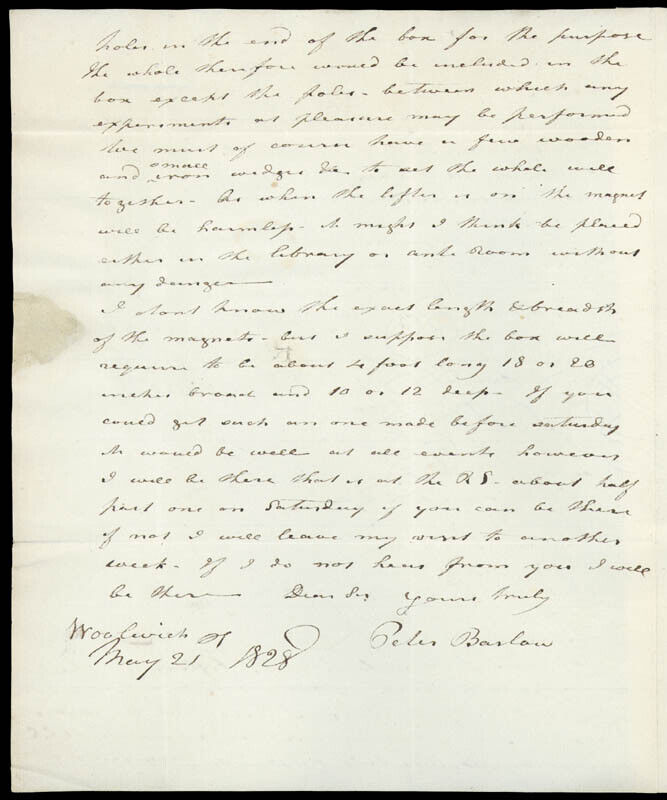 holes in the end of the box for the purpose
the whole therefore would be included in the
box except the poles - between which any
experiments at pleasure may be performed
We must of course have a few wooden
small
and iron wedges &c to set the whole well
together - As when the lifter is on the magnet
will be harmless - it might I think be placed
either in the library or anti Room without
any danger
I dont know the exact length & breadth
of the magnets - but I suppose the box will
require to be about 4 foot long 18 or 20
inches broad and 10 or 12 deep - If you
could get such an one made before saturday
it would be well at all events however
I will be there that is at the RS - about half
past one on Saturday if you can be there
if not I will leave my visit to another
week - If I do not hear from you I will
be there Dear Sir yours truly
Woolwich Peter Barlow
May 21 1828